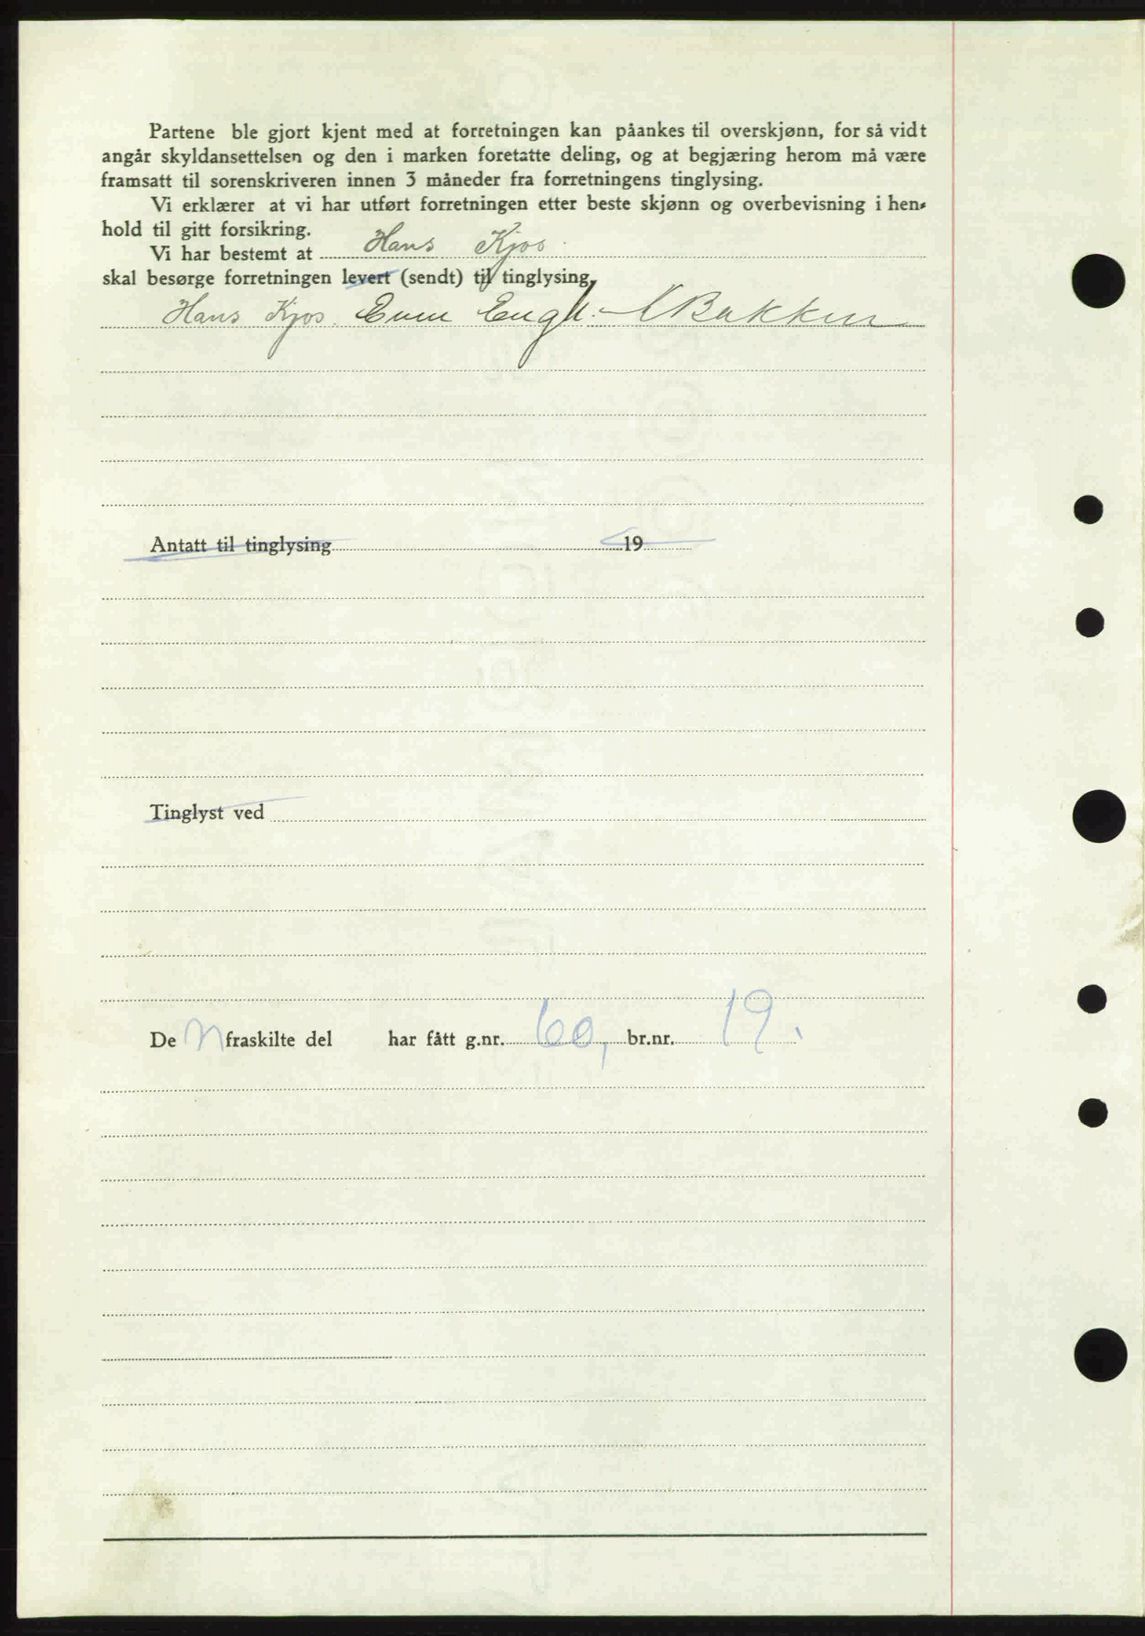 Partene ble gjort kjent med at forretningen kan påankes til overskjønn, for så vidt
angår skyldansettelsen og den i marken foretatte deling, og at begjæring herom må være
framsatt til sorenskriveren innen 3 måneder fra forretningens tinglysing.
Vi erklærer at vi har utført forretningen etter beste skjønn og overbevisning i hen-
hold til gitt forsikring.
Vi har bestemt at Hans Kjos
skal besørge forretningen levert (sendt) til tinglysing.
Hans Kjos. Even Engh. Bakken
Antatt til tinglysing 19
Tinglyst ved
De n fraskilte del har fått g.nr. 60, br.nr. 19.